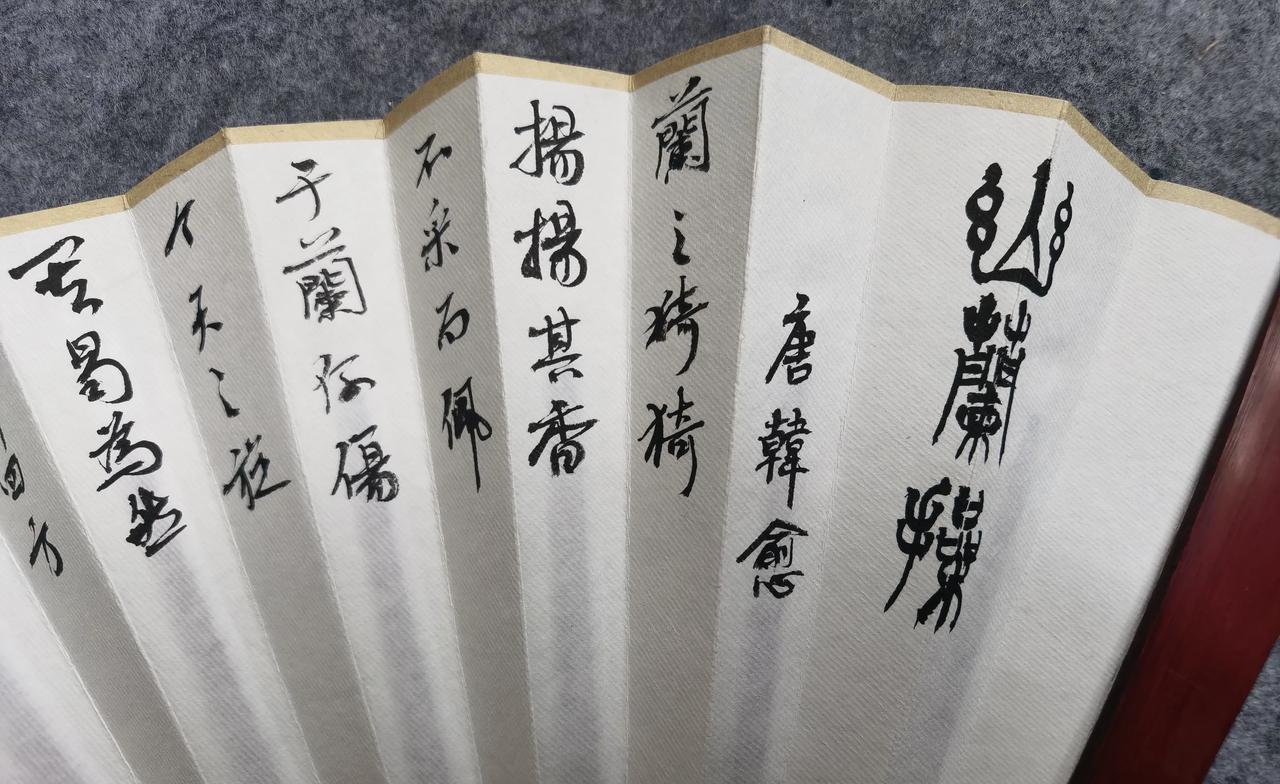 幽蘭操
唐韓愈
蘭之猗猗
揚揚其香
不采而佩
于蘭何傷
今天之旋
其曷為然
四方